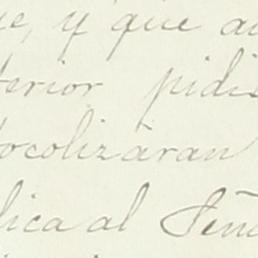 e, y que a
terior pidi
tocolizaran
lica al Seño